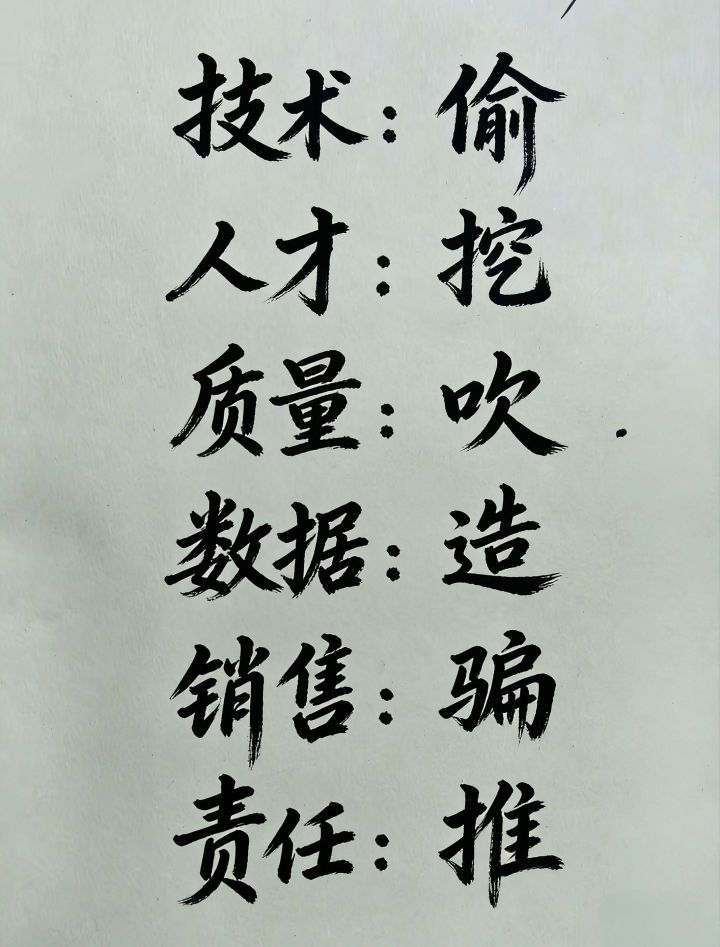 技术：偷
人才：挖
质量：吹
数据：造
销售：骗
责任：推